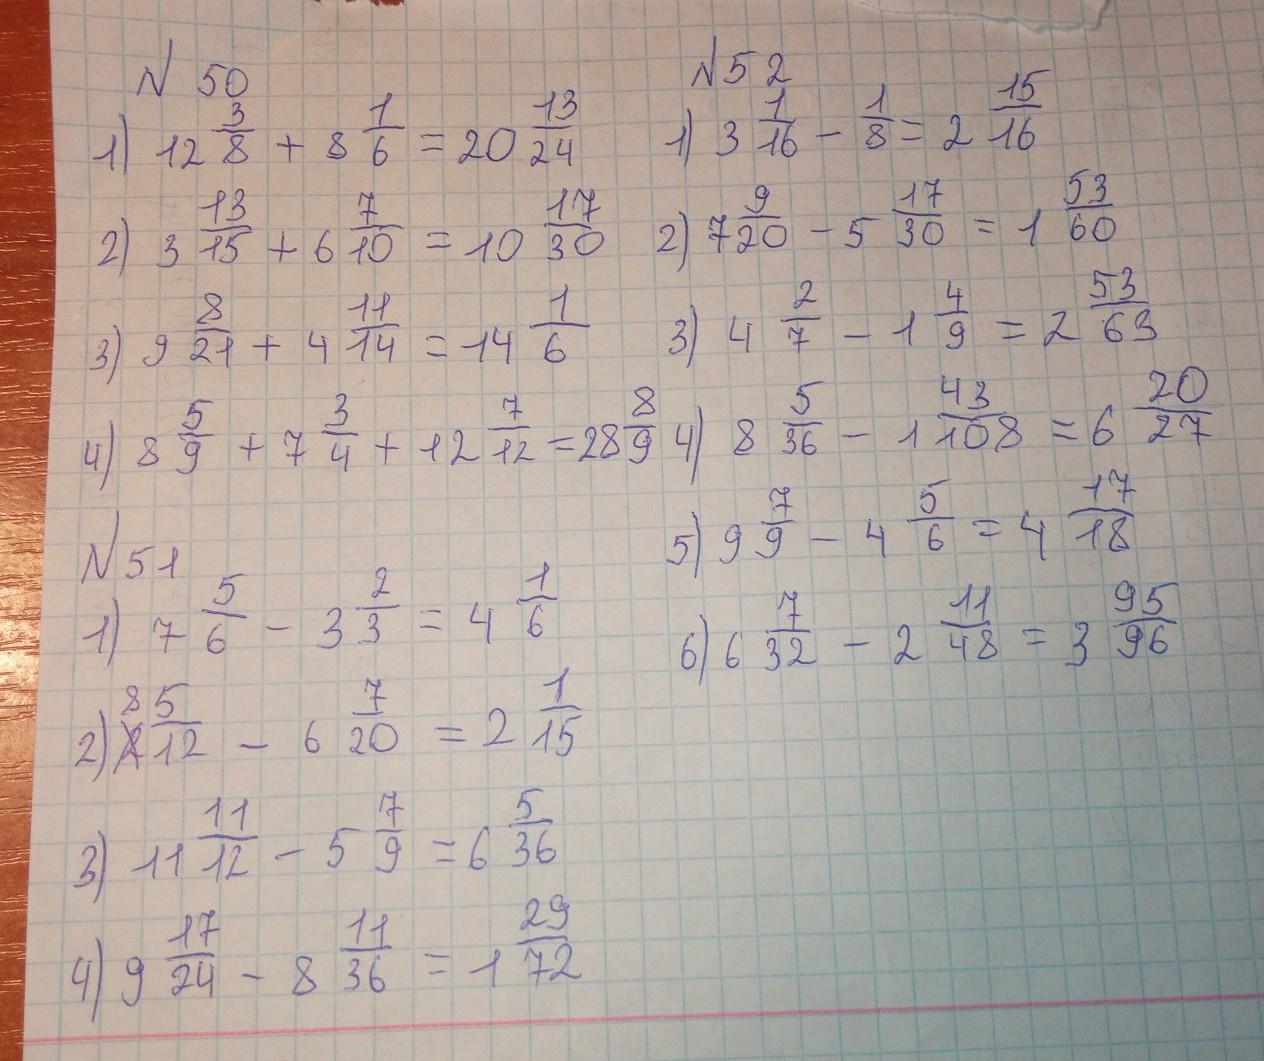 N 50
1) 12 3/8 + 8 1/6 = 20 13/24
2) 3 13/15 + 6 7/10 = 10 17/30
3) 9 8/21 + 4 11/14 = 14 1/6
4) 8 5/9 + 7 3/4 + 12 7/12 = 28 8/9
N 51
1) 7 5/6 - 3 2/3 = 4 1/6
2) 8 5/12 - 6 7/20 = 2 1/15
3) 11 11/12 - 5 7/9 = 6 5/36
4) 9 17/24 - 8 11/36 = 1 29/72
N 52
1) 3 1/16 - 1/8 = 2 15/16
2) 7 9/20 - 5 17/30 = 1 53/60
3) 4 2/7 - 1 4/9 = 2 53/63
4) 8 5/36 - 1 43/108 = 6 20/27
5) 9 7/9 - 4 5/6 = 4 17/18
6) 6 7/32 - 2 11/48 = 3 95/96